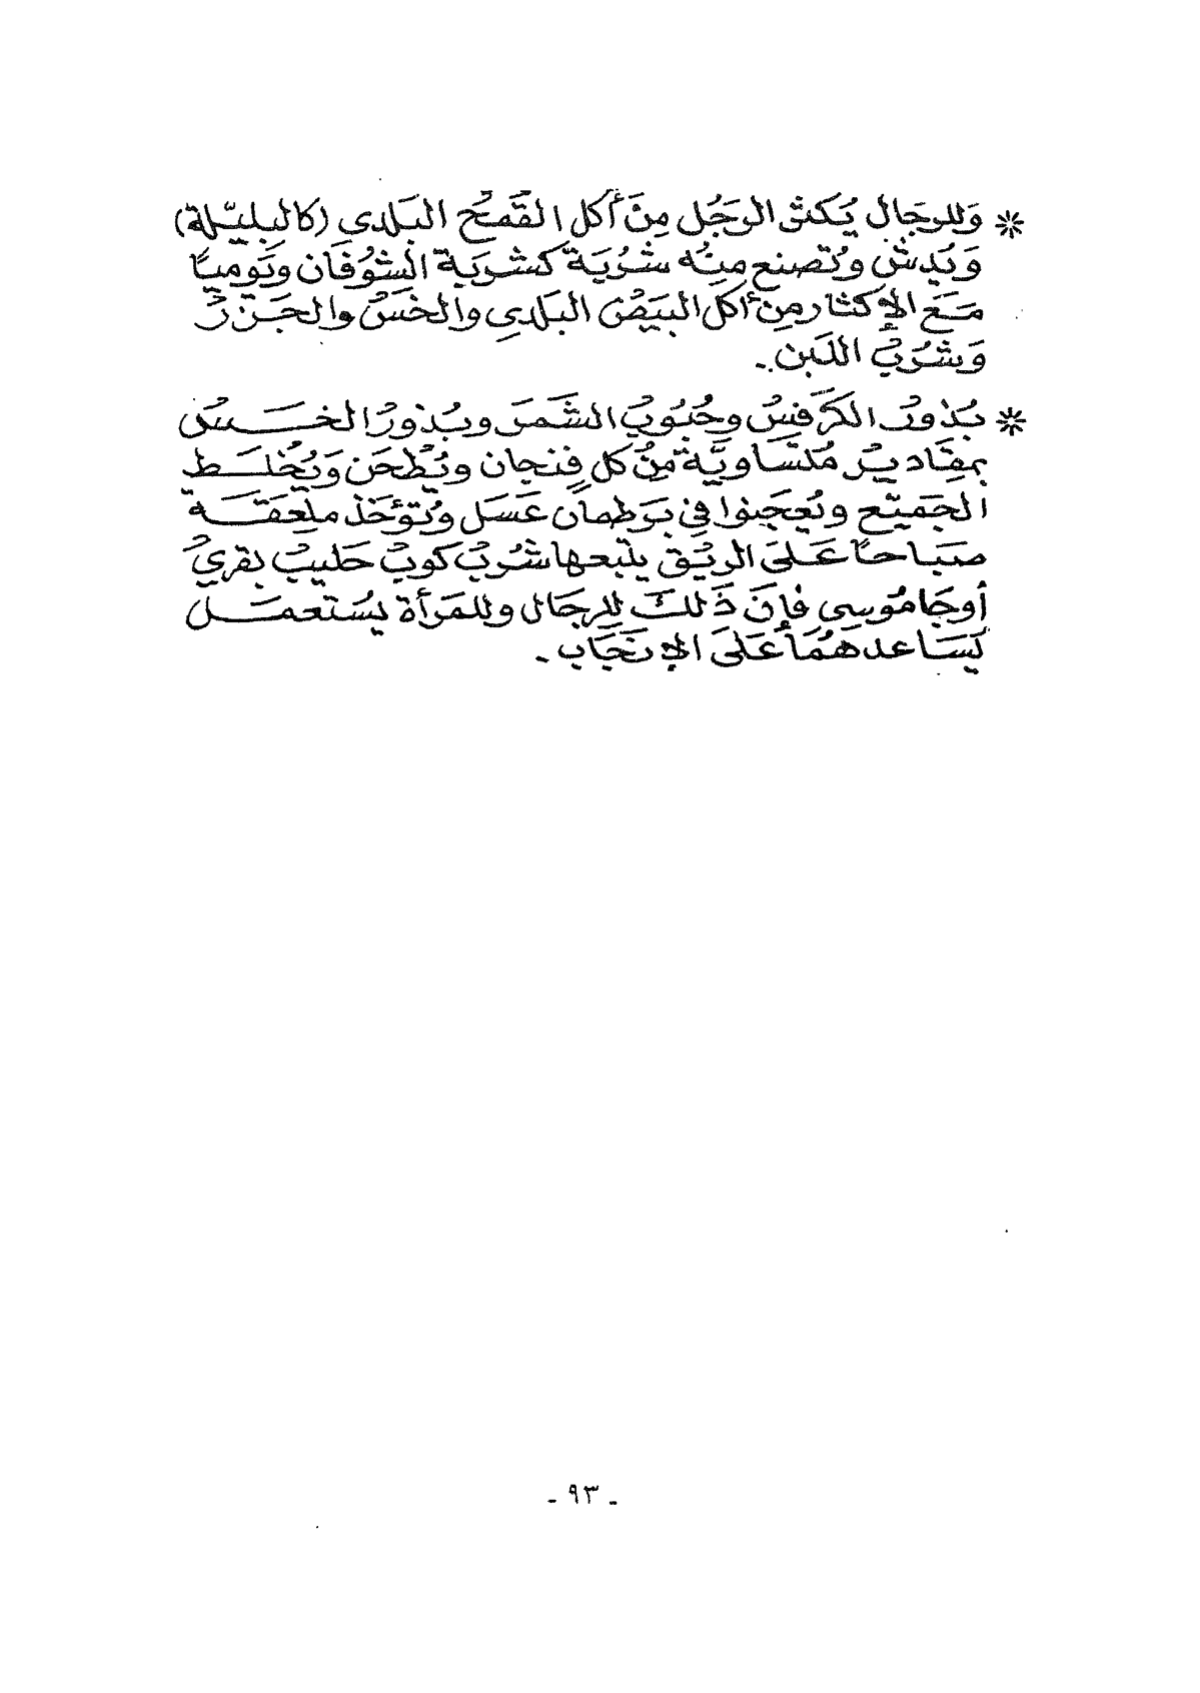 * وَللرجَال يُكثر الرجُل مِنَ أكل القَمحُ البَلدى (كالبليّلة)
وَيُدشُ وتُصنع مِنُه شُربَة كشربَة الشوُفَان ويَومياً
مَعَ الإكثار مِنَ أكل البَيضُ البَلدىِ والخسُ والجَزرُ
وَشُربُ اللبن .
* بُذورُ الكَرَفسُ وحُبوُبُ الشَمَرَ وبُذورُ الخَسُ
بمقَاديرُ مُتسَاويَّة مِنُ كل فنجان ويُطحَن وَيُخلَط
الجَميُع ويُعجَنوا فىِ بَرطمان عَسَل وتُؤخَذ ملعَقَة
صبَاحاً عَلىَ الريُق يتبعها شُربُ كوبُ حَليبُ بقرىُ
أوجَامُوسِى فإنَ ذَلكَ للرجَال وللمَرأة يسُتعمَل
يسَاعدهُمَا عَلىَ الإنجَاب .
- ٩٣ -